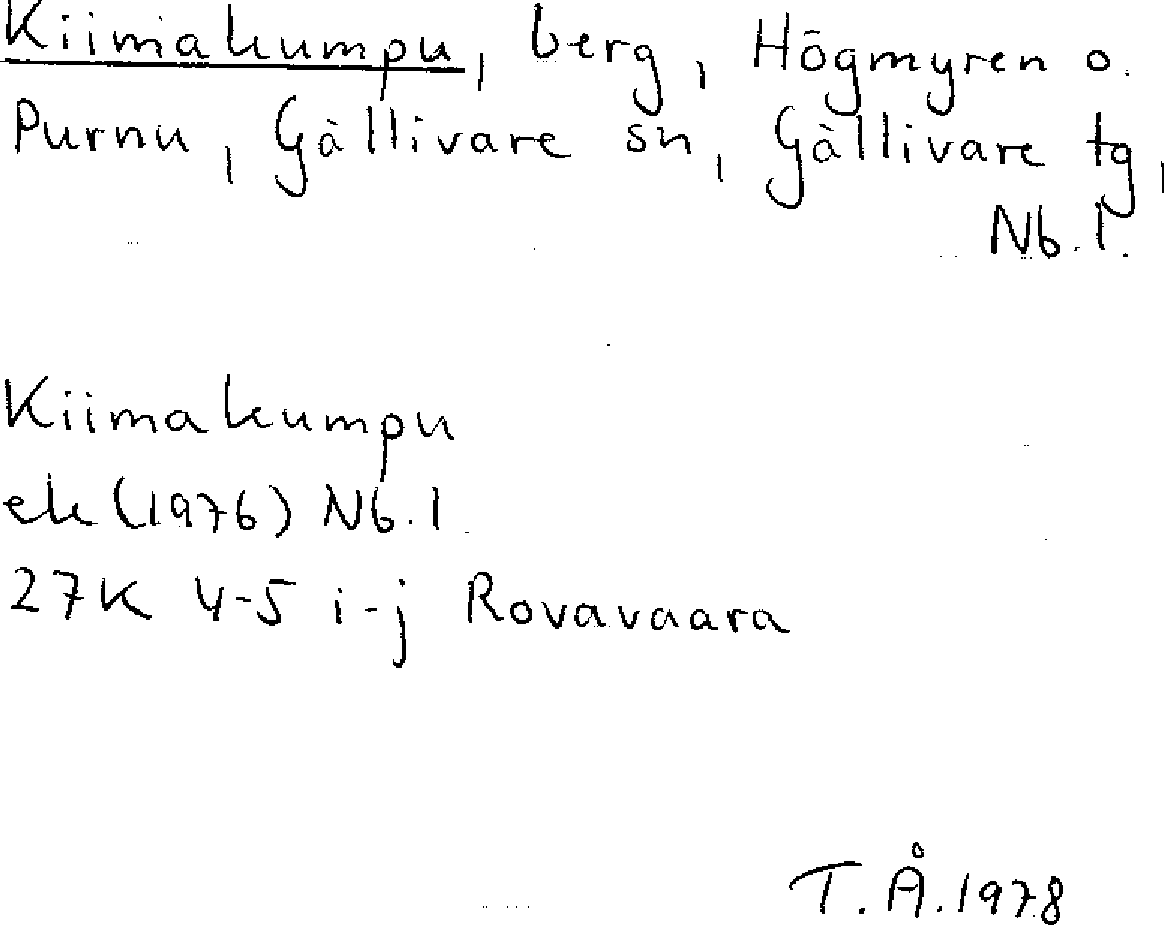 Kiimakumpu, berg, Högmyren o.
Purnu, Gällivare sn, Gällivare tg,
Nb. l.
Kiimakumpu
ek (1976) Nb. l
27K 4-5 i-j Rovavaara
T.Å.1978